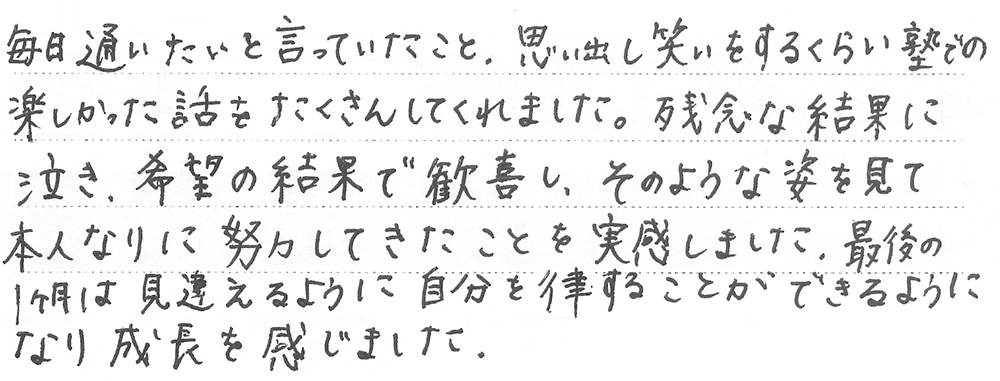 毎日通いたいと言っていたこと、思い出し笑いをするくらい塾での
楽しかった話をたくさんしてくれました。残念な結果に
泣き、希望の結果で歓喜し、そのような姿を見て
本人なりに努力してきたことを実感しました。最後の
1ヶ月は見違えるように自分を律することができるように
なり成長を感じました。